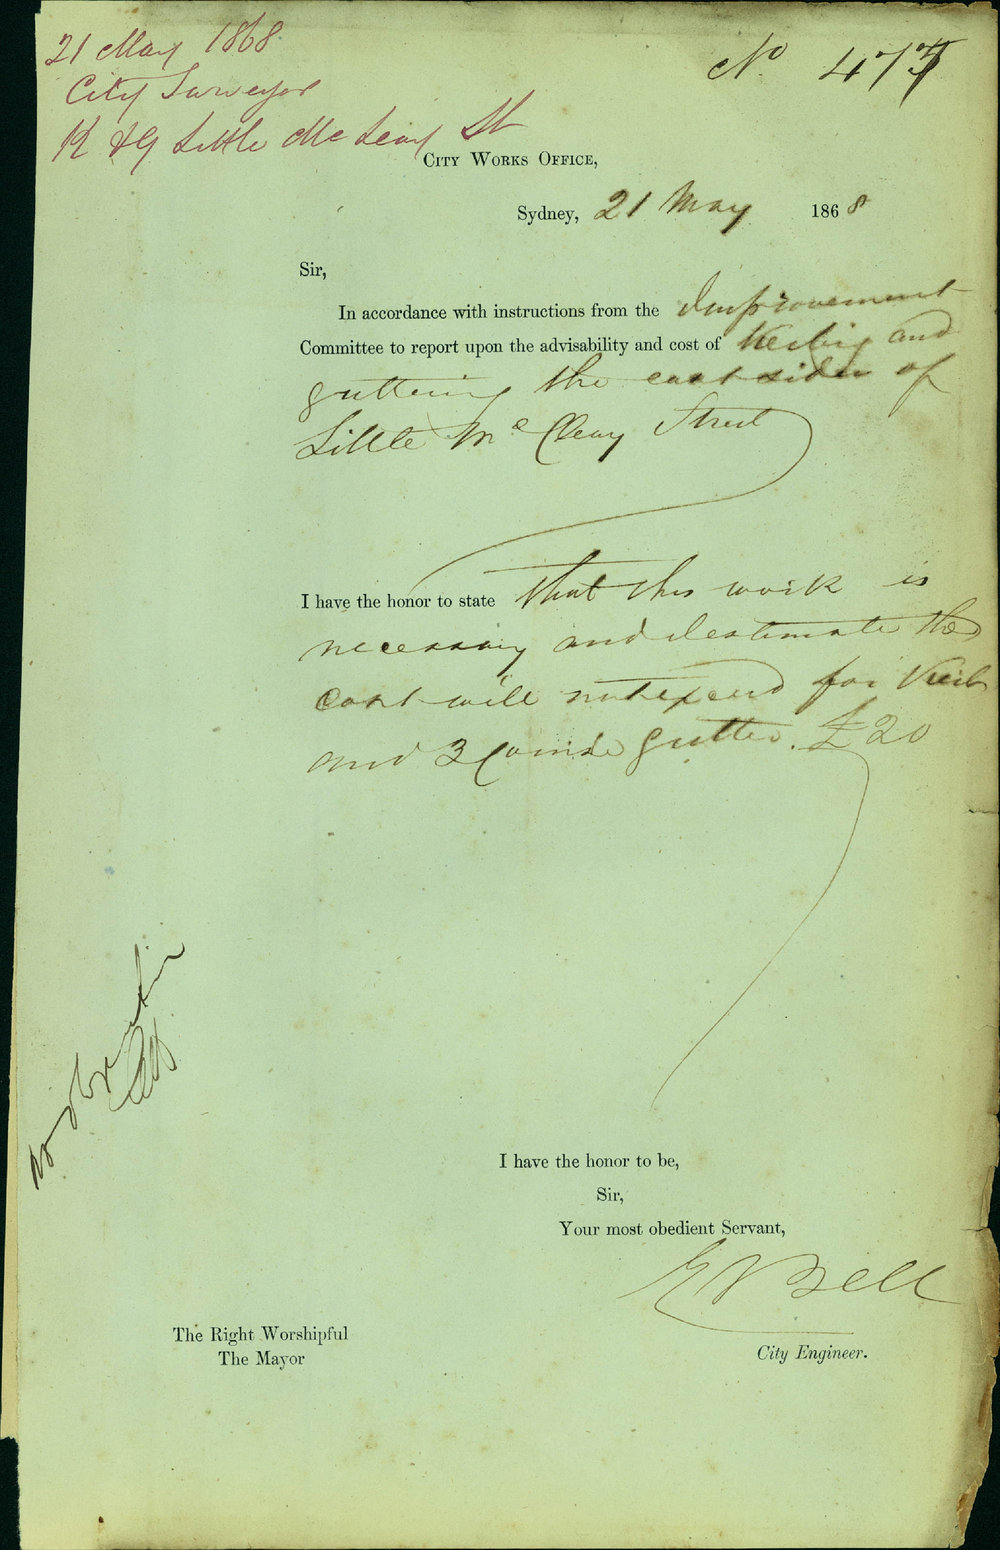 21 May 1868
City Surveyor
K & G Little McLeay St
No 477
CITY WORKS OFFICE,
Sydney, 21 May 1868
Sir,
In accordance with instructions from the Improvement
Committee to report upon the advisability and cost of Kerbing and
guttering the east side of
Little McCleay Street
I have the honor to state that this work is
necessary and I estimate the
cost will not exceed for Kerb
and 3 Course gutter. £20
I have the honor to be,
Sir,
Your most obedient Servant,
E Bell
City Engineer.
The Right Worshipful
The Mayor